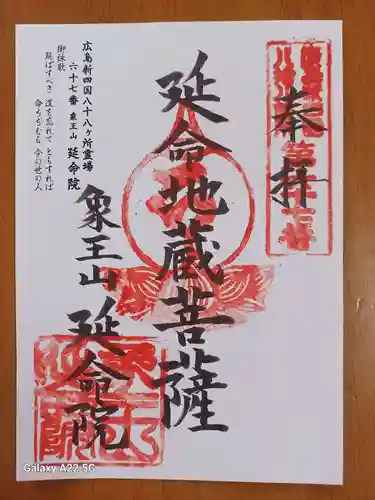 奉拝
延命地蔵菩薩
象王山
延命院
広島新四国八十八ヶ所霊場
六十七番 象王山 延命院
御詠歌
延ばすべき 道を忘れて ともすれば
命ちぢむる 今の世の人
Galaxy A22 5G